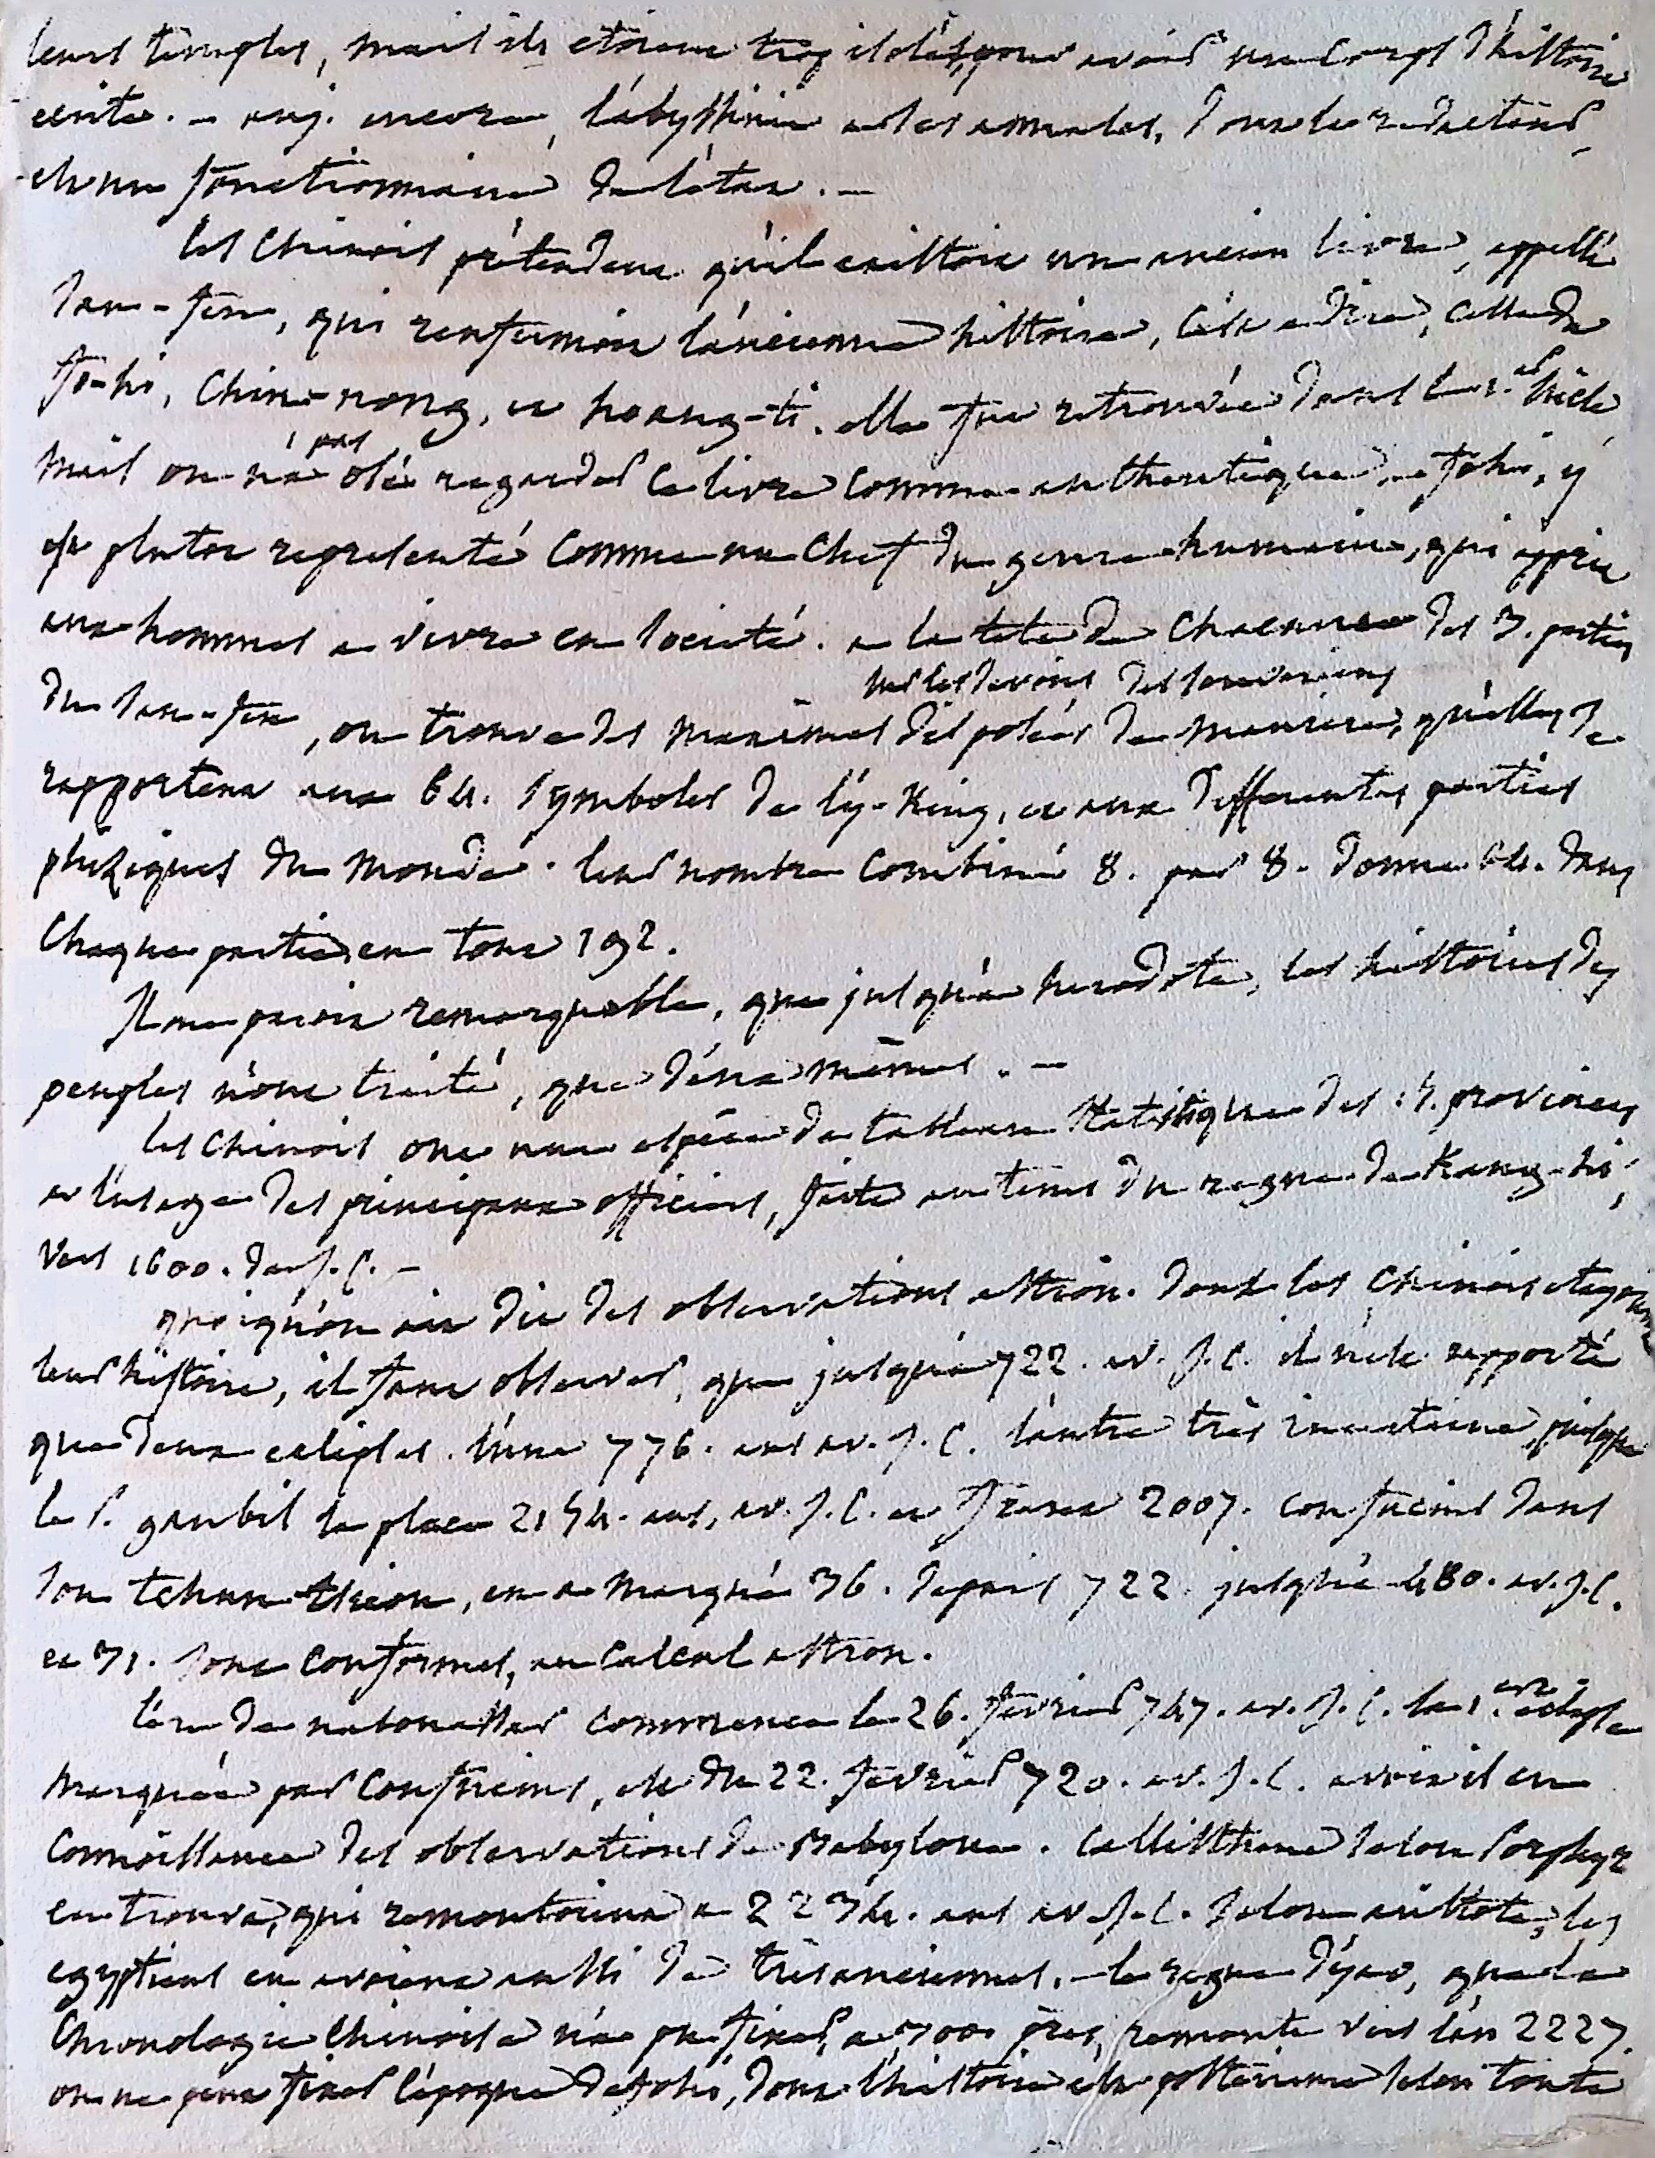 leurs temples, mais ils etoient trop isolés, pour avoir un corps d'histoire
ecrite. - auj. encore, l'abyssinie a des annales, dont le redacteur
est un fonctionnaire de l'etat. -
les chinois prétendent qu'il existoit un ancien livre, appellé
san-fen, qui renfermoit l'ancienne histoire, c'est a dire, celle de
fo-hi, chin-nong, et hoang-ti. elle fut retrouvée dans le 1.er siècle
mais on n'a pas osé regarder ce livre comme authentique. - fohi, y
est plutot representé comme un chef du genre humain, qui apprit
aux hommes a vivre en societé. a la tete de chacune des 3. parties
du san-fen, on trouve des maximes sur les devoirs des souverains disposées de maniere, qu'elles se
rapportent aux 64. symboles de l'y-King, et aux differentes parties
phisiques du monde. leur nombre combiné 8. par 8. donne 64. dans
chaque partie, en tout 192.
Il me paroit remarquable, que jusqu'a herodote, les histoires des
peuples n'ont traité, que d'eux mêmes. -
les chinois ont une espèce de tableau statistique des 15. provinces
a l'usage des principaux officiers, faite au tems du regne de Kang-hi,
vers 1600. de J. C. -
quoiqu'on ait dit des observations astron. dont les chinois etayoient
leur histoire, il faut observer, que jusqu'a 722. av. J. C. il n'est rapporté
que deux eclipses. l'une 776. ans av. J. C. l'autre très incertaine, puisque
le P. gaubil la place 2154. ans, av. J. C. et Freret 2007. confucius dans
son tchun-tsieou, en a marqué 36. depuis 722. jusqu'à 480. av. J. C.
et 31. sont conformes, au calcul astron.
l'ere de nabonassar commence le 26. fevrier 747. av. J. C. la 1.ere eclipse
marquée par confucius, est du 22. fevrier 720. av. J. C. avoit il eu
connoissance des observations de Babylone. callisthene selon Porphyre
en trouva, qui remontoient a 2234. ans av. J. C. selon aristote, les
egyptiens en avoient aussi de très anciennes. - le regne d'yao, que la
chronologie chinoise n'a pu fixer, a 300. près, remonte vers l'an 2227.
on ne peut fixer l'époque de fohi, dont l'histoire est postérieure selon toute